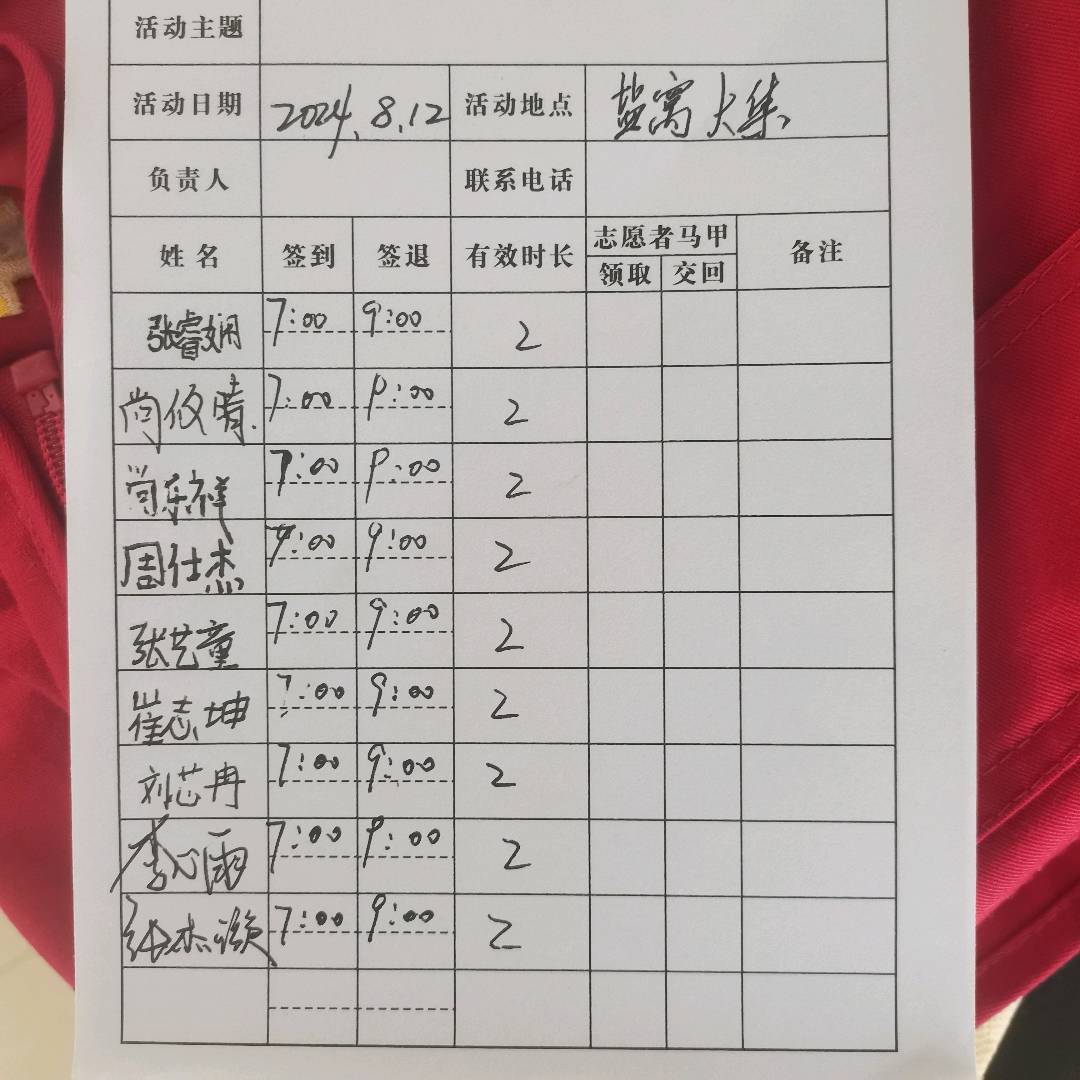 活动主题
活动日期 2024.8.12 活动地点 盐窝大集
负责人 联系电话
姓名 签到 签退 有效时长 志愿者马甲 领取 交回 备注
张睿娴 7:00 9:00 2
尚攸晴 7:00 9:00 2
尚乐祥 7:00 9:00 2
周仕杰 7:00 9:00 2
张艺童 7:00 9:00 2
崔志坤 7:00 9:00 2
刘芯冉 7:00 9:00 2
李心雨 7:00 9:00 2
张杰 7:00 9:00 2